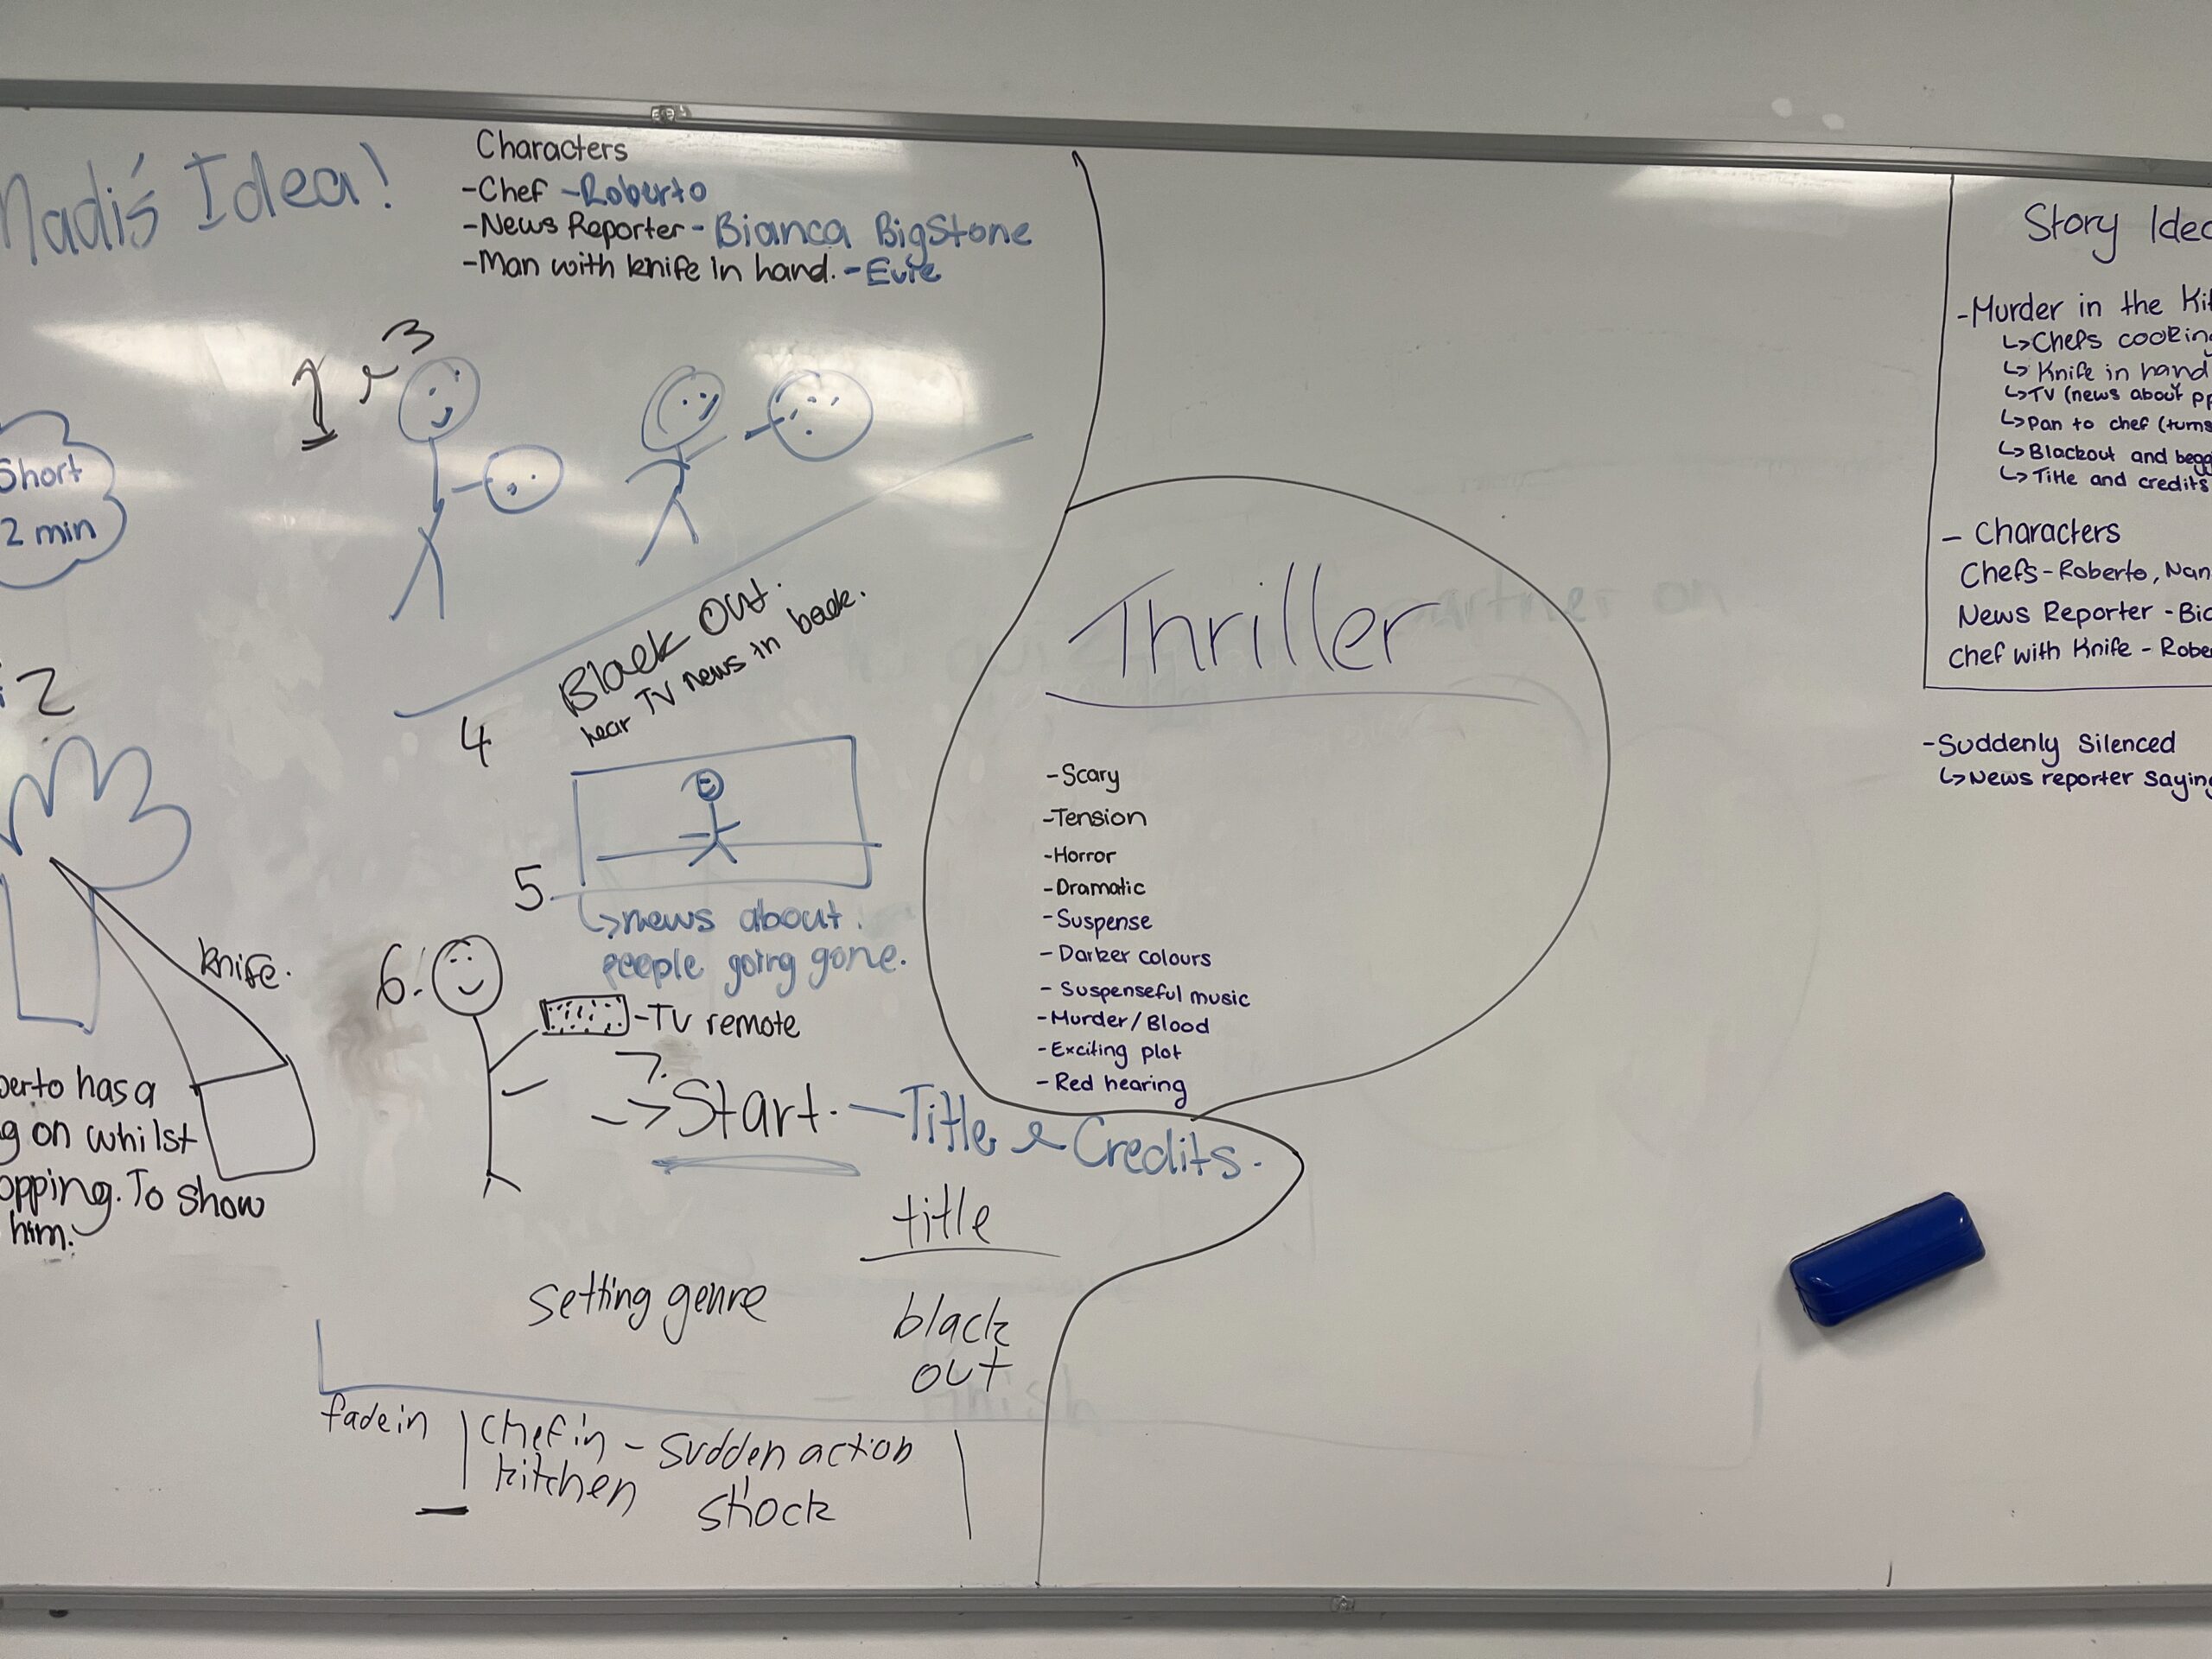 Madi's Idea!
Characters
-Chef -Roberto
-News Reporter - Bianca BigStone
-Man with knife in hand. - Evie
1
3
Short
2 min
2
4
Black Out.
hear TV news in back.
5.
↳news about
people going gone.
knife.
6.
-TV remote
7.
-> Start. - Title & Credits.
has a
on whilst
To show
him.
title
setting genre
black
out
fade in
chef in - sudden action
kitchen
shock
Thriller
-Scary
-Tension
-Horror
-Dramatic
-Suspense
- Darker colours
- Suspenseful music
-Murder/Blood
-Exciting plot
- Red hearing
Story
-Murder in the
↳Chefs
↳ Knife in hand
↳TV (news about
↳Pan to chef
↳Blackout and
↳Title and credits
- Characters
Chefs - Roberto,
News Reporter -
Chef with Knife -
-Suddenly Silenced
↳News reporter